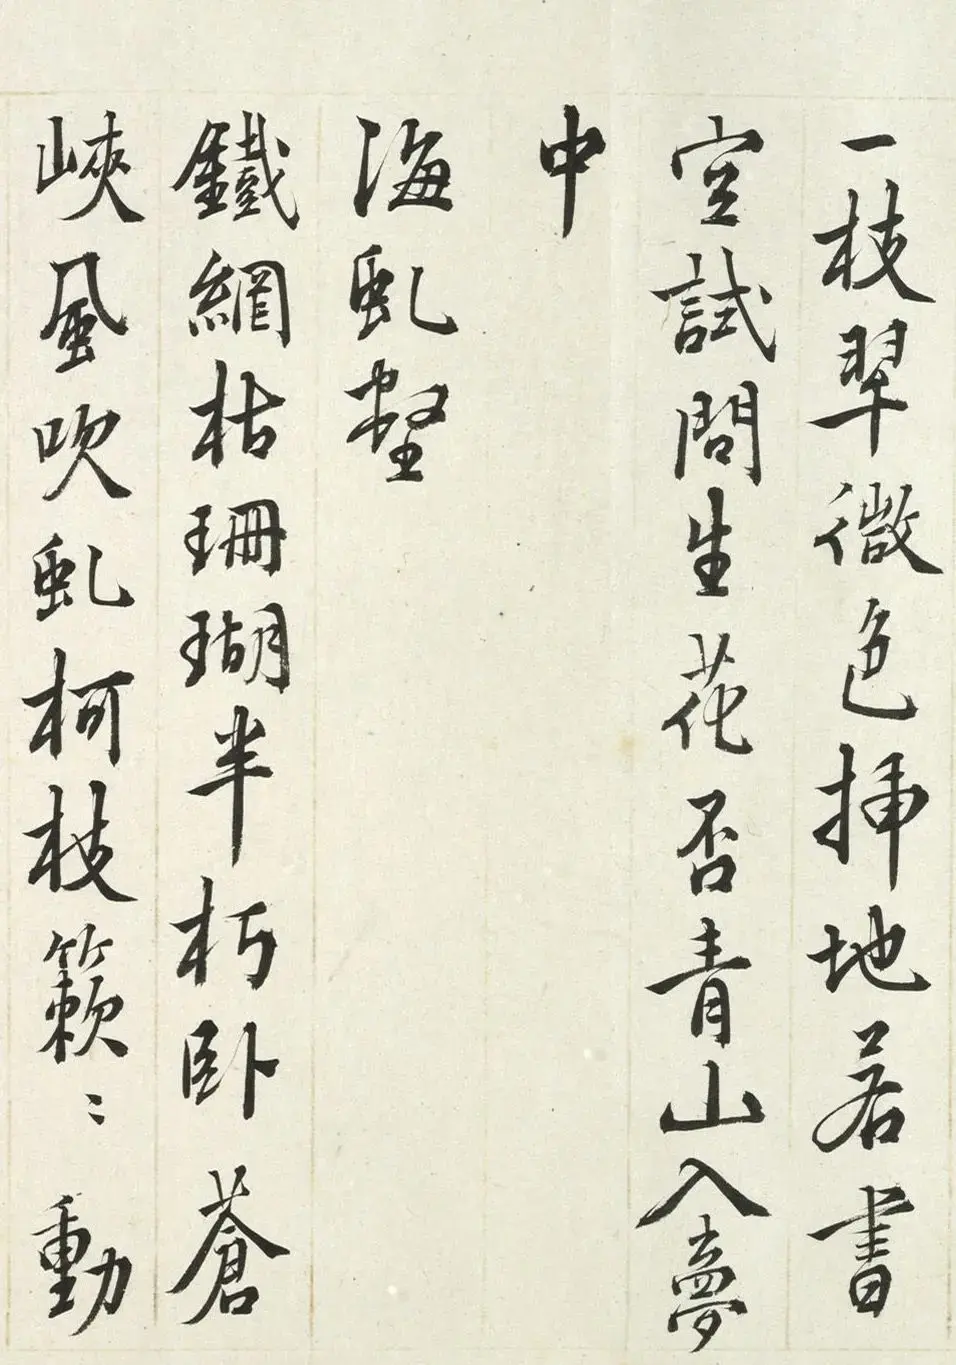 一枝翆微色挿地若書
空試問生花否青山入夢
中
海虬壑
鐵網枯珊瑚半朽卧蒼
峽風吹虬柯枝籟〻動